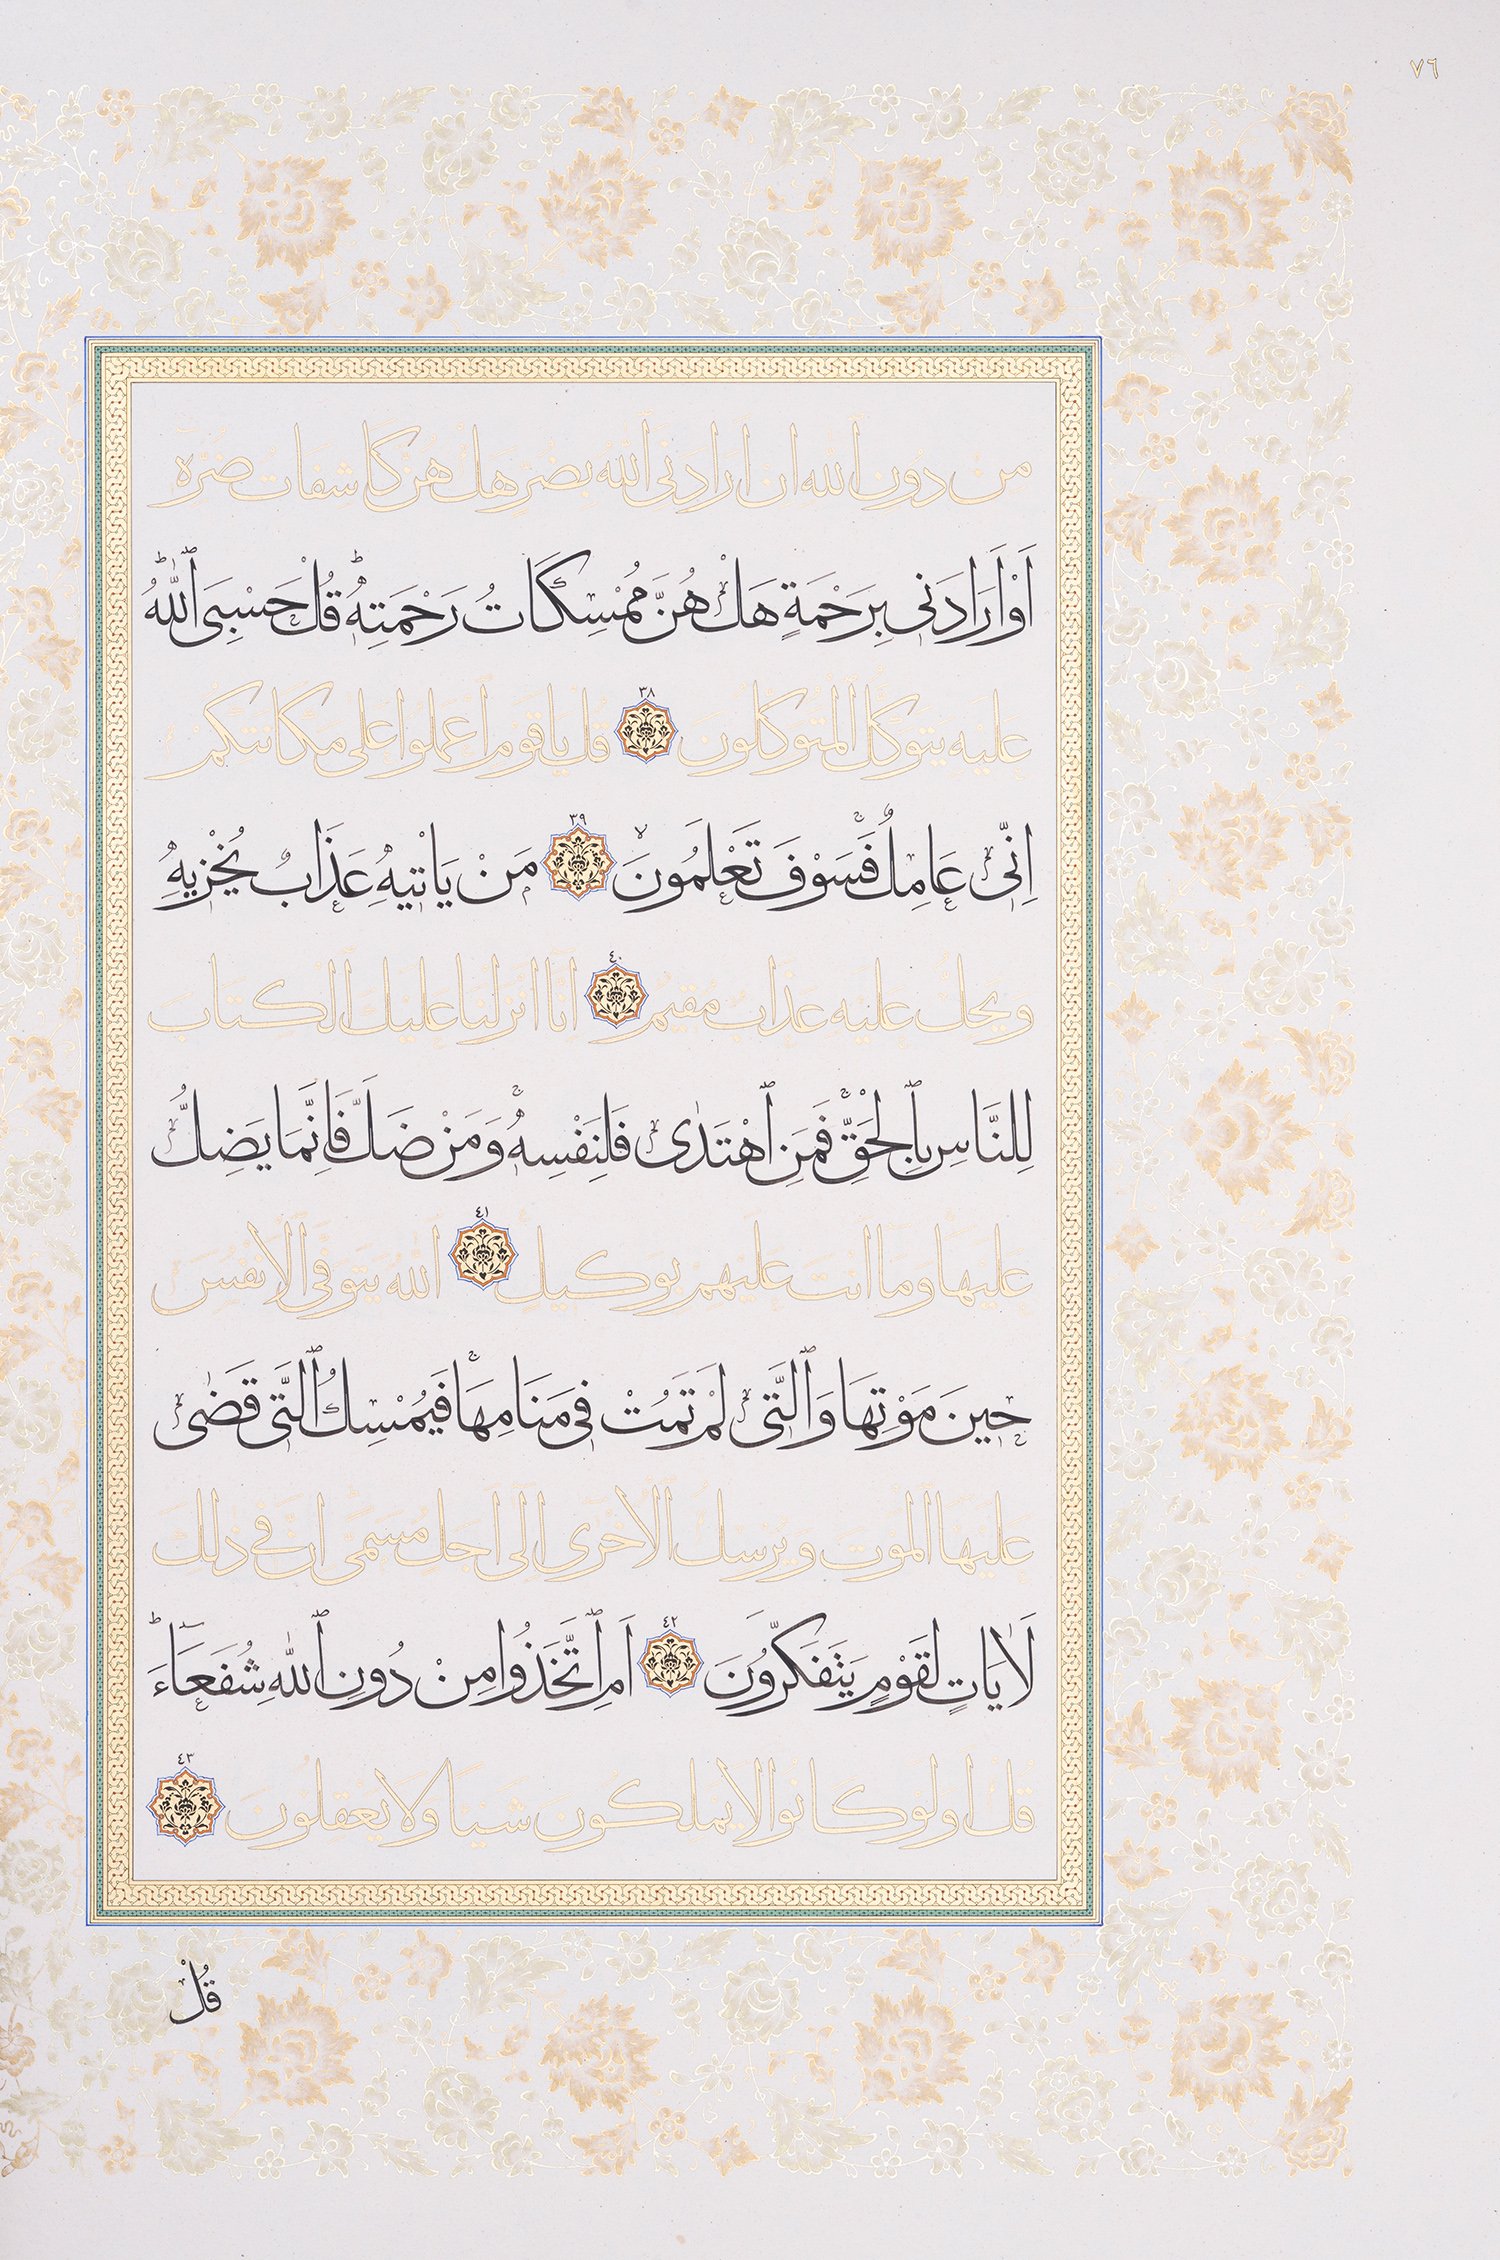 ٧٦
من دون الله ان ارادنی الله بضر هل هن کاشفات ضره
اَوْ اَرَادَنٖی بِرَحْمَةٍ هَلْ هُنَّ مُمْسِكَاتُ رَحْمَتِهٖؕ قُلْ حَسْبِیَ اللّٰهُؕ
علیه یتوکل المتوکلون ٣٨ قل یا قوم اعملوا علی مکانتکم
اِنّٖی عَامِلٌۚ فَسَوْفَ تَعْلَمُونَۙ ٣٩ مَنْ یَاْتٖیهِ عَذَابٌ یُخْزٖیهِ
ویحل علیه عذاب مقیم ٤٠ انا انزلنا علیك الکتاب
لِلنَّاسِ بِالْحَقِّۚ فَمَنِ اهْتَدٰی فَلِنَفْسِهٖۚ وَمَنْ ضَلَّ فَاِنَّمَا یَضِلُّ
علیها وما انت علیهم بوکیل ٤١ الله یتوفی الانفس
حٖینَ مَوْتِهَا وَالَّتٖی لَمْ تَمُتْ فٖی مَنَامِهَاۚ فَیُمْسِكُ الَّتٖی قَضٰی
علیها الموت ویرسل الاخری الی اجل مسمی ان فی ذلك
لَاٰیَاتٍ لِقَوْمٍ یَتَفَكَّرُونَ ٤٢ اَمِ اتَّخَذُوا مِنْ دُونِ اللّٰهِ شُفَعَٓاءَؕ
قل اولو کانوا لا یملکون شیا ولا یعقلون ٤٣
قُلْ